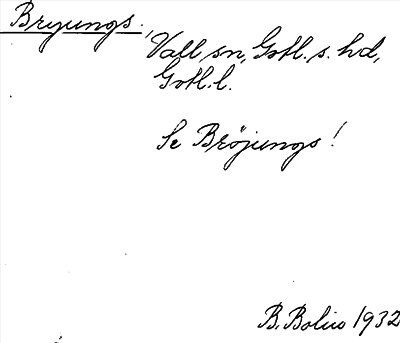 Bryungs.,
Vall sn, Gotl. s. hd,
Gotl. l.
Se Bröjungs!
B. Bolin 1932